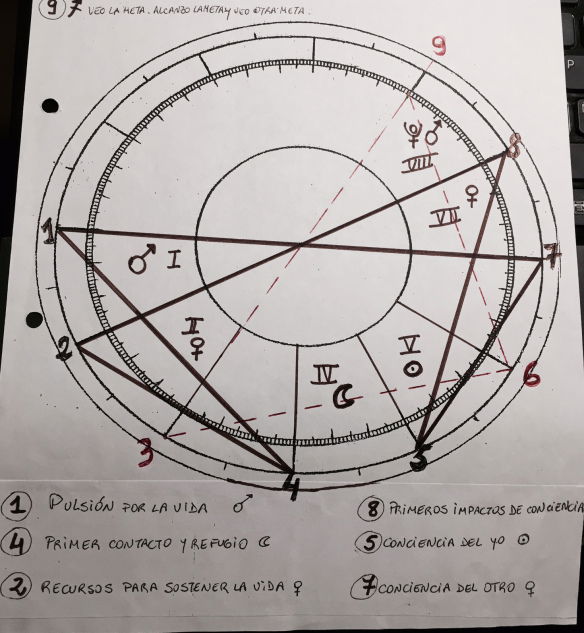 9 7 VEO LA META. ALCANZO LA META Y VEO OTRA META.
9
8
VIII
VII
1
I
7
II
2
V
IV
6
3
5
4
1 PULSIÓN POR LA VIDA ♂
8 PRIMEROS IMPACTOS DE CONCIENCIA
4 PRIMER CONTACTO Y REFUGIO ☾
5 CONCIENCIA DEL YO ☉
2 RECURSOS PARA SOSTENER LA VIDA ♀
7 CONCIENCIA DEL OTRO ♀
P